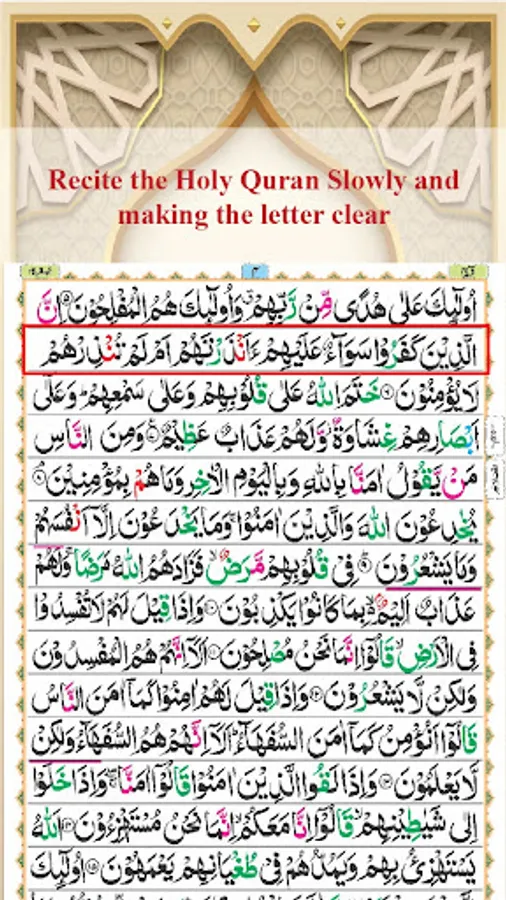 Recite the Holy Quran Slowly and
making the letter clear
٣
اُولٰٓئِكَ عَلٰى هُدًى مِّنْ رَّبِّهِمْ ۙ وَاُولٰٓئِكَ هُمُ الْمُفْلِحُوْنَ ۝۵ اِنَّ
الَّذِيْنَ كَفَرُوْا سَوَآءٌ عَلَيْهِمْ ءَاَنْذَرْتَهُمْ اَمْ لَمْ تُنْذِرْهُمْ
لَا يُؤْمِنُوْنَ ۝۶ خَتَمَ اللّٰهُ عَلٰى قُلُوْبِهِمْ وَعَلٰى سَمْعِهِمْ ؕ وَعَلٰٓى
اَبْصَارِهِمْ غِشَاوَةٌ ؗ وَّلَهُمْ عَذَابٌ عَظِيْمٌ ۝۷ وَمِنَ النَّاسِ
مَنْ يَّقُوْلُ اٰمَنَّا بِاللّٰهِ وَبِالْيَوْمِ الْاٰخِرِ وَمَا هُمْ بِمُؤْمِنِيْنَ ۝۸
يُخٰدِعُوْنَ اللّٰهَ وَالَّذِيْنَ اٰمَنُوْا ۚ وَمَا يَخْدَعُوْنَ اِلَّاۤ اَنْفُسَهُمْ
وَمَا يَشْعُرُوْنَ ۝۹ فِيْ قُلُوْبِهِمْ مَّرَضٌ ۙ فَزَادَهُمُ اللّٰهُ مَرَضًا ۚ وَلَهُمْ
عَذَابٌ اَلِيْمٌ ۙ۬ بِمَا كَانُوْا يَكْذِبُوْنَ ۝۱۰ وَاِذَا قِيْلَ لَهُمْ لَا تُفْسِدُوْا
فِى الْاَرْضِ ۙ قَالُوْۤا اِنَّمَا نَحْنُ مُصْلِحُوْنَ ۝۱۱ اَلَاۤ اِنَّهُمْ هُمُ الْمُفْسِدُوْنَ
وَلٰكِنْ لَّا يَشْعُرُوْنَ ۝۱۲ وَاِذَا قِيْلَ لَهُمْ اٰمِنُوْا كَمَاۤ اٰمَنَ النَّاسُ
قَالُوْۤا اَنُؤْمِنُ كَمَاۤ اٰمَنَ السُّفَهَآءُ ؕ اَلَاۤ اِنَّهُمْ هُمُ السُّفَهَآءُ وَلٰكِنْ
لَّا يَعْلَمُوْنَ ۝۱۳ وَاِذَا لَقُوا الَّذِيْنَ اٰمَنُوْا قَالُوْۤا اٰمَنَّا ۖۚ وَاِذَا خَلَوْا
اِلٰى شَيٰطِيْنِهِمْ ۙ قَالُوْۤا اِنَّا مَعَكُمْ ۙ اِنَّمَا نَحْنُ مُسْتَهْزِءُوْنَ ۝۱۴ اَللّٰهُ
يَسْتَهْزِئُ بِهِمْ وَيَمُدُّهُمْ فِيْ طُغْيَانِهِمْ يَعْمَهُوْنَ ۝۱۵ اُولٰٓئِكَ